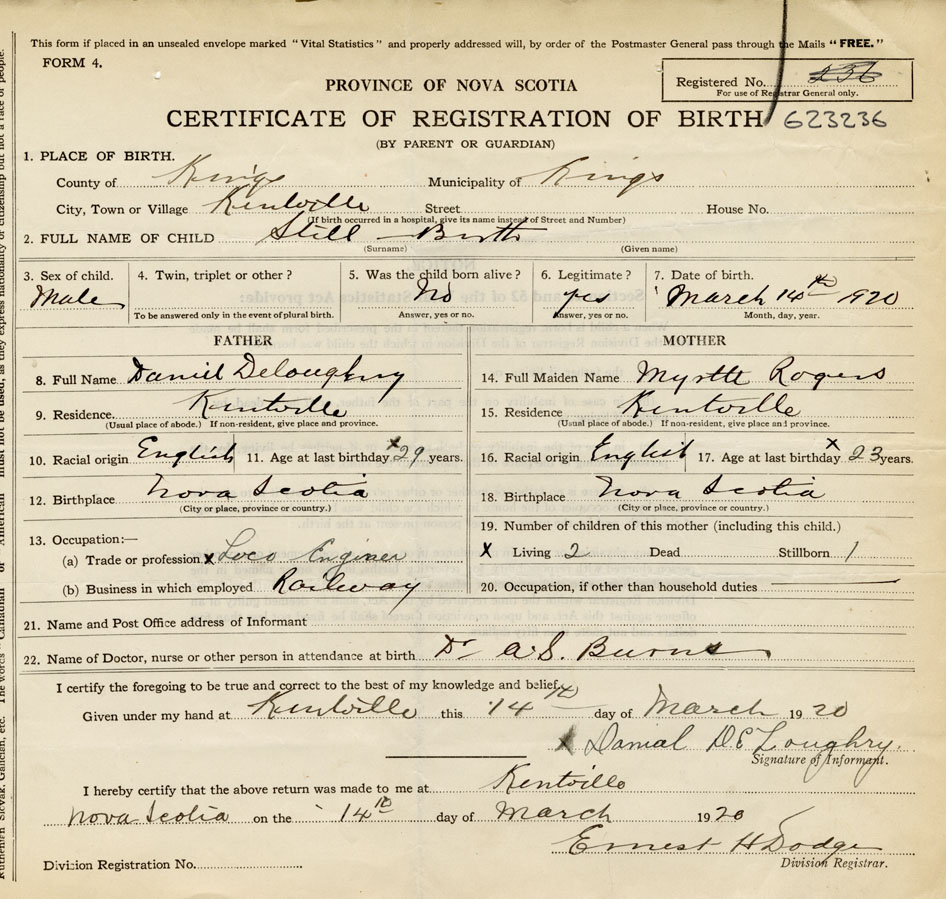 This form if placed in an unsealed envelope marked “Vital Statistics” and properly addressed will, by order of the Postmaster General pass through the Mails “FREE.”
FORM 4.
Registered No. 236
For use of Registrar General only.
PROVINCE OF NOVA SCOTIA
CERTIFICATE OF REGISTRATION OF BIRTH 623236
(BY PARENT OR GUARDIAN)
1. PLACE OF BIRTH.
County of Kings Municipality of Kings
City, Town or Village Kentville Street House No.
(If birth occurred in a hospital, give its name instead of Street and Number)
2. FULL NAME OF CHILD Still Birth
(Surname) (Given name)
3. Sex of child. 4. Twin, triplet or other? 5. Was the child born alive? 6. Legitimate? 7. Date of birth.
Male No yes March 14th 1920
To be answered only in the event of plural birth. Answer, yes or no. Answer, yes or no. Month, day, year.
FATHER MOTHER
8. Full Name Daniel Deloughry 14. Full Maiden Name Myrtle Rogers
9. Residence. Kentville 15. Residence Kentville
(Usual place of abode.) If non-resident, give place and province. (Usual place of abode.) If non-resident, give place and province.
10. Racial origin English 11. Age at last birthday x 29 years. 16. Racial origin English 17. Age at last birthday x 23 years.
12. Birthplace Nova Scotia 18. Birthplace Nova Scotia
(City or place, province or country.) (City or place, province or country.)
13. Occupation:— 19. Number of children of this mother (including this child.)
(a) Trade or profession x Loco Enginer x Living 2 Dead Stillborn 1
(b) Business in which employed Railway 20. Occupation, if other than household duties
21. Name and Post Office address of Informant
22. Name of Doctor, nurse or other person in attendance at birth Dr A.S. Burns
I certify the foregoing to be true and correct to the best of my knowledge and belief.
Given under my hand at Kentville this 14th day of March 1920
x Danial DeLoughry.
Signature of Informant.
I hereby certify that the above return was made to me at Kentville
Nova Scotia on the 14th day of March 1920
Ernest H Dodge
Division Registrar.
Division Registration No.